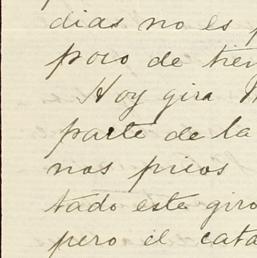 dias no es
poco de tien
Hoy gira
parte de la
nos picos
tado este giro
pero el cata